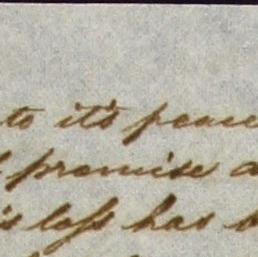 to it's peace
promise a
is loſs has b